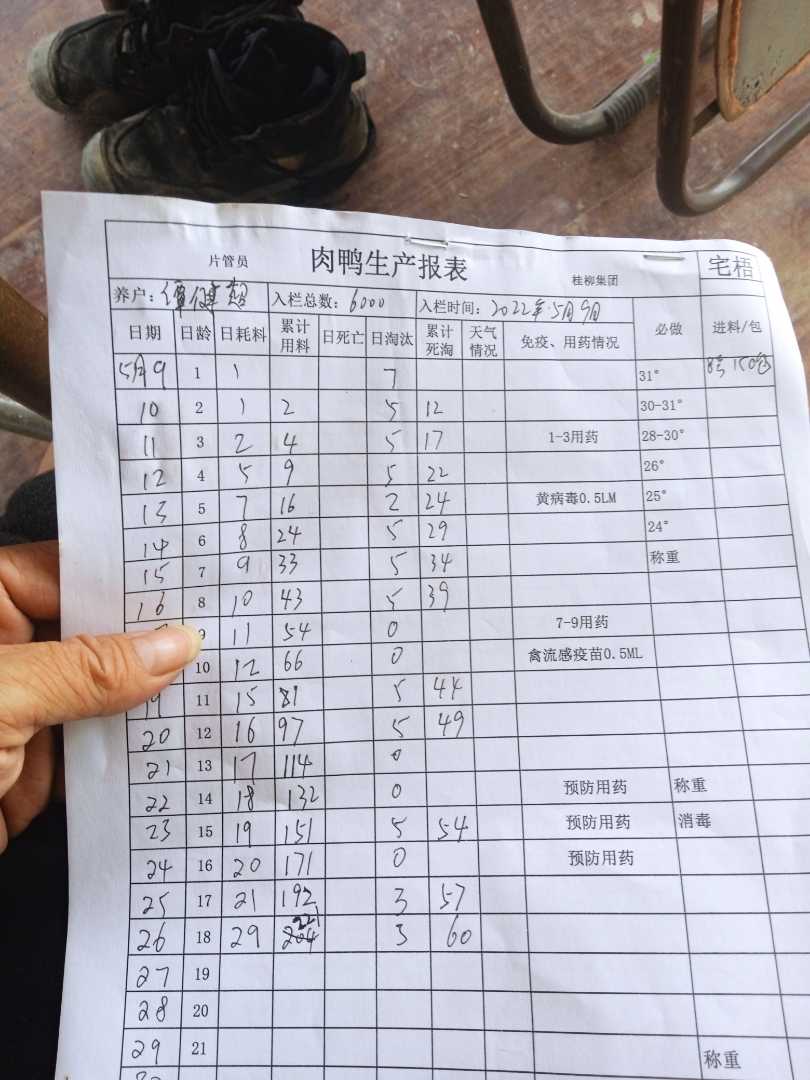 片管员 肉鸭生产报表 桂柳集团 宅梧
养户: 谭健超 入栏总数: 6000 入栏时间: 2022年5月9日
日期 日龄 日耗料 累计用料 日死亡 日淘汰 累计死淘 天气情况 免疫、用药情况 必做 进料/包
5月9 1 1 7 31° 8号 150包
10 2 1 2 5 12 30-31°
11 3 2 4 5 17 1-3用药 28-30°
12 4 5 9 5 22 26°
13 5 7 16 2 24 黄病毒0.5LM 25°
14 6 8 24 5 29 24°
15 7 9 33 5 34 称重
16 8 10 43 5 39
9 11 54 0 7-9用药
10 12 66 0 禽流感疫苗0.5ML
19 11 15 81 5 44
20 12 16 97 5 49
21 13 17 114 0
22 14 18 132 0 预防用药 称重
23 15 19 151 5 54 预防用药 消毒
24 16 20 171 0 预防用药
25 17 21 192 3 57
26 18 29 221 3 60
27 19
28 20
29 21 称重